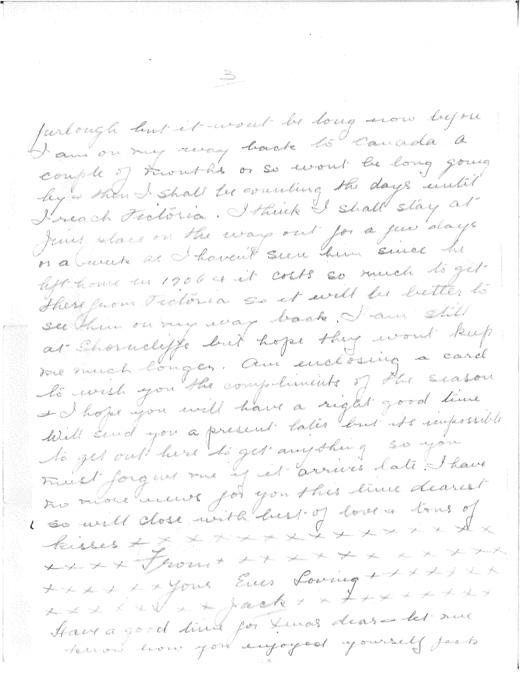 3
furlough but it wont be long now before
I am on my way back to Canada a
couple of months or so wont be long going
by & then I shall be counting the days until
I reach Victoria. I think I shall stay at
Jims place on the way out for a few days
or a week as I haven't seen him since he
left home in 1906 & it costs so much to get
there from Victoria so it will be better to
see them on my way back. I am still
at Shorncliffe but hope they wont keep
me much longer. Am enclosing a card
to wish you the compliments of the season
& I hope you will have a right good time
Will send you a present later but its impossible
to get out here to get anything so you
must forgive me if it arrives late. I have
no more news for you this time dearest
so will close with best of love & tons of
kisses x x x x x x x x x x x x
x x x x From x x x x x x x x x
x x x x x x Your Ever Loving x x x x x x
x x x x x x x x Jack x x x x x x x
Have a good time for Xmas dear & let me
know how you enjoyed yourself Jack